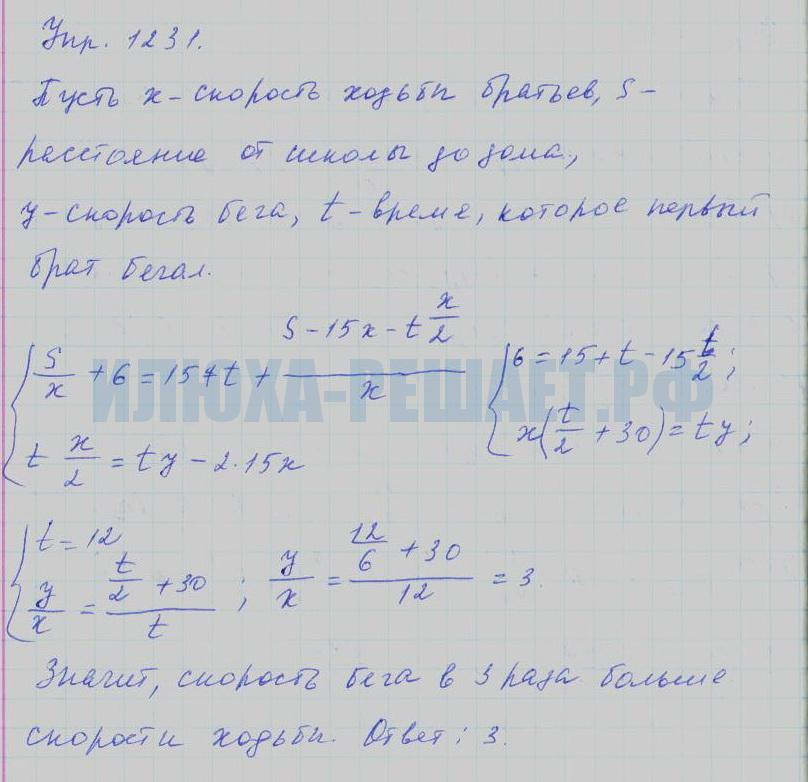 Упр. 1231.
Пусть x - скорость ходьбы братьев, S -
расстояние от школы до дома,
y - скорость бега, t - время, которое первый
брат бегал.
{ S/x + 6 = 15 + t + (S - 15x - t x/2)/x
{ t x/2 = ty - 2·15x
{ 6 = 15 + t - 15 - t/2;
{ x(t/2 + 30) = ty;
ИЛЮХА-РЕШАЕТ.РФ
{ t = 12
{ y/x = (t/2 + 30)/t ; y/x = (12/6 + 30)/12 = 3.
Значит, скорость бега в 3 раза больше
скорости ходьбы. Ответ: 3.